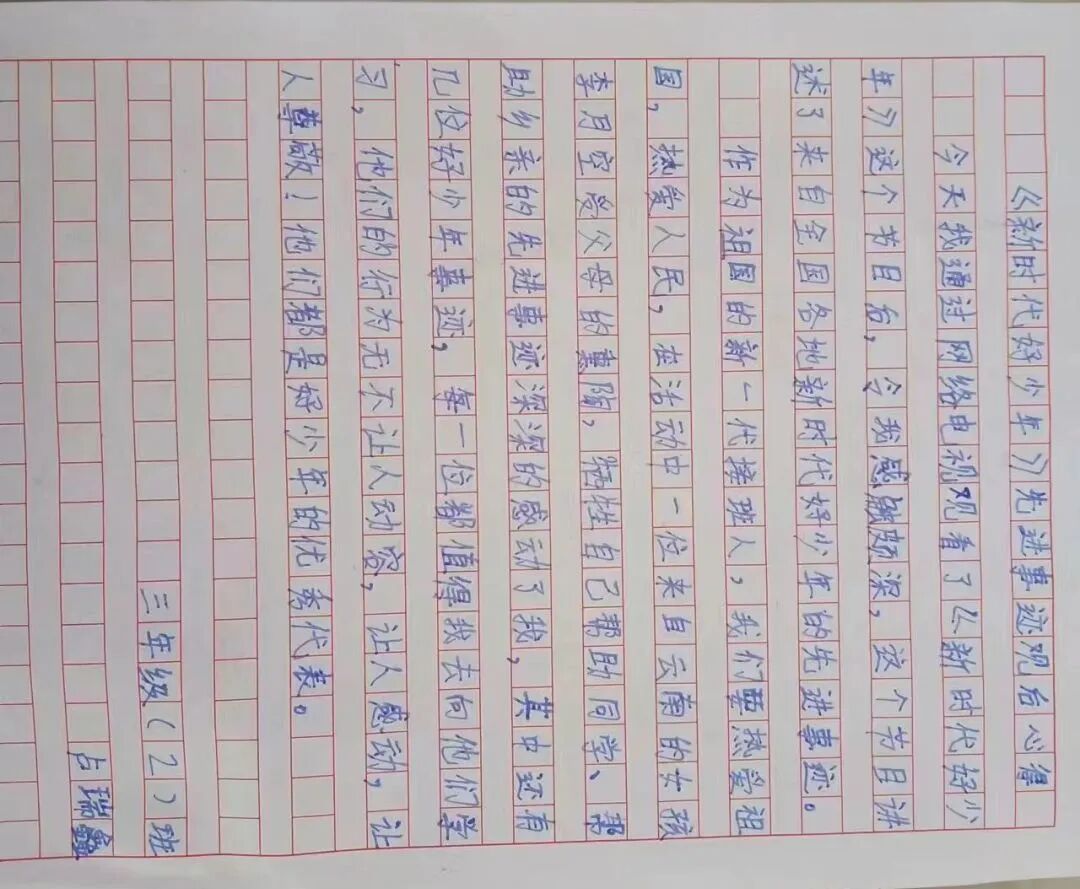 《新时代好少年》先进事迹观后心得
今天我通过网络电视观看了《新时代好少
年》这个节目后,令我感触颇深,这个节目讲
述了来自全国各地新时代好少年的先进事迹。
作为祖国的新一代接班人,我们要热爱祖
国,热爱人民,在活动中一位来自云南的女孩
李月空受父母的熏陶,牺牲自己帮助同学、帮
助乡亲的先进事迹深深的感动了我,其中还有
几位好少年事迹,每一位都值得我去向他们学
习,他们的行为无不让人动容,让人感动,让
人尊敬!他们都是好少年的优秀代表。
三年级(2)班
占瑞鑫